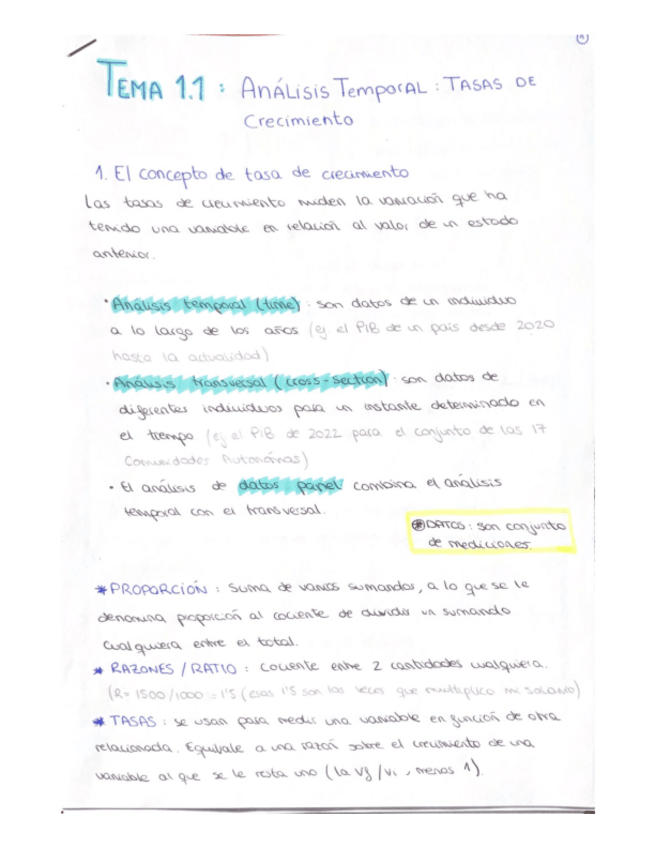 TEMA 1.1 : ANÁLisis TemporAL : TASAS DE
Crecimiento
1. El concepto de tasa de crecimiento
Las tasas de crecimiento miden la variación que ha
tenido una variable en relación al valor de un estado
anterior.
• Análisis temporal (time) : son datos de un individuo
a lo largo de los años (ej el PIB de un país desde 2020
hasta la actualidad)
• Análisis transversal (cross-section) : son datos de
diferentes individuos para un instante determinado en
el tiempo (ej el PIB de 2022 para el conjunto de las 17
Comunidades Autonómas)
• El análisis de datos panel combina el análisis
temporal con el transversal.
* DATOS : son conjunto
de mediciones.
* PROPORCIÓN : suma de varios sumandos, a lo que se le
denomina proporción al cociente de dividir un sumando
cualquiera entre el total.
* RAZONES / RATIO : cociente entre 2 cantidades cualquiera.
(R= 1500/1000 = 1'5 (esas 1'5 son las veces que multiplico mi salario)
* TASAS : se usan para medir una variable en función de otra
relacionada. Equivale a una razón sobre el crecimiento de una
variable al que se le resta uno (la Vf/Vi , menos 1).